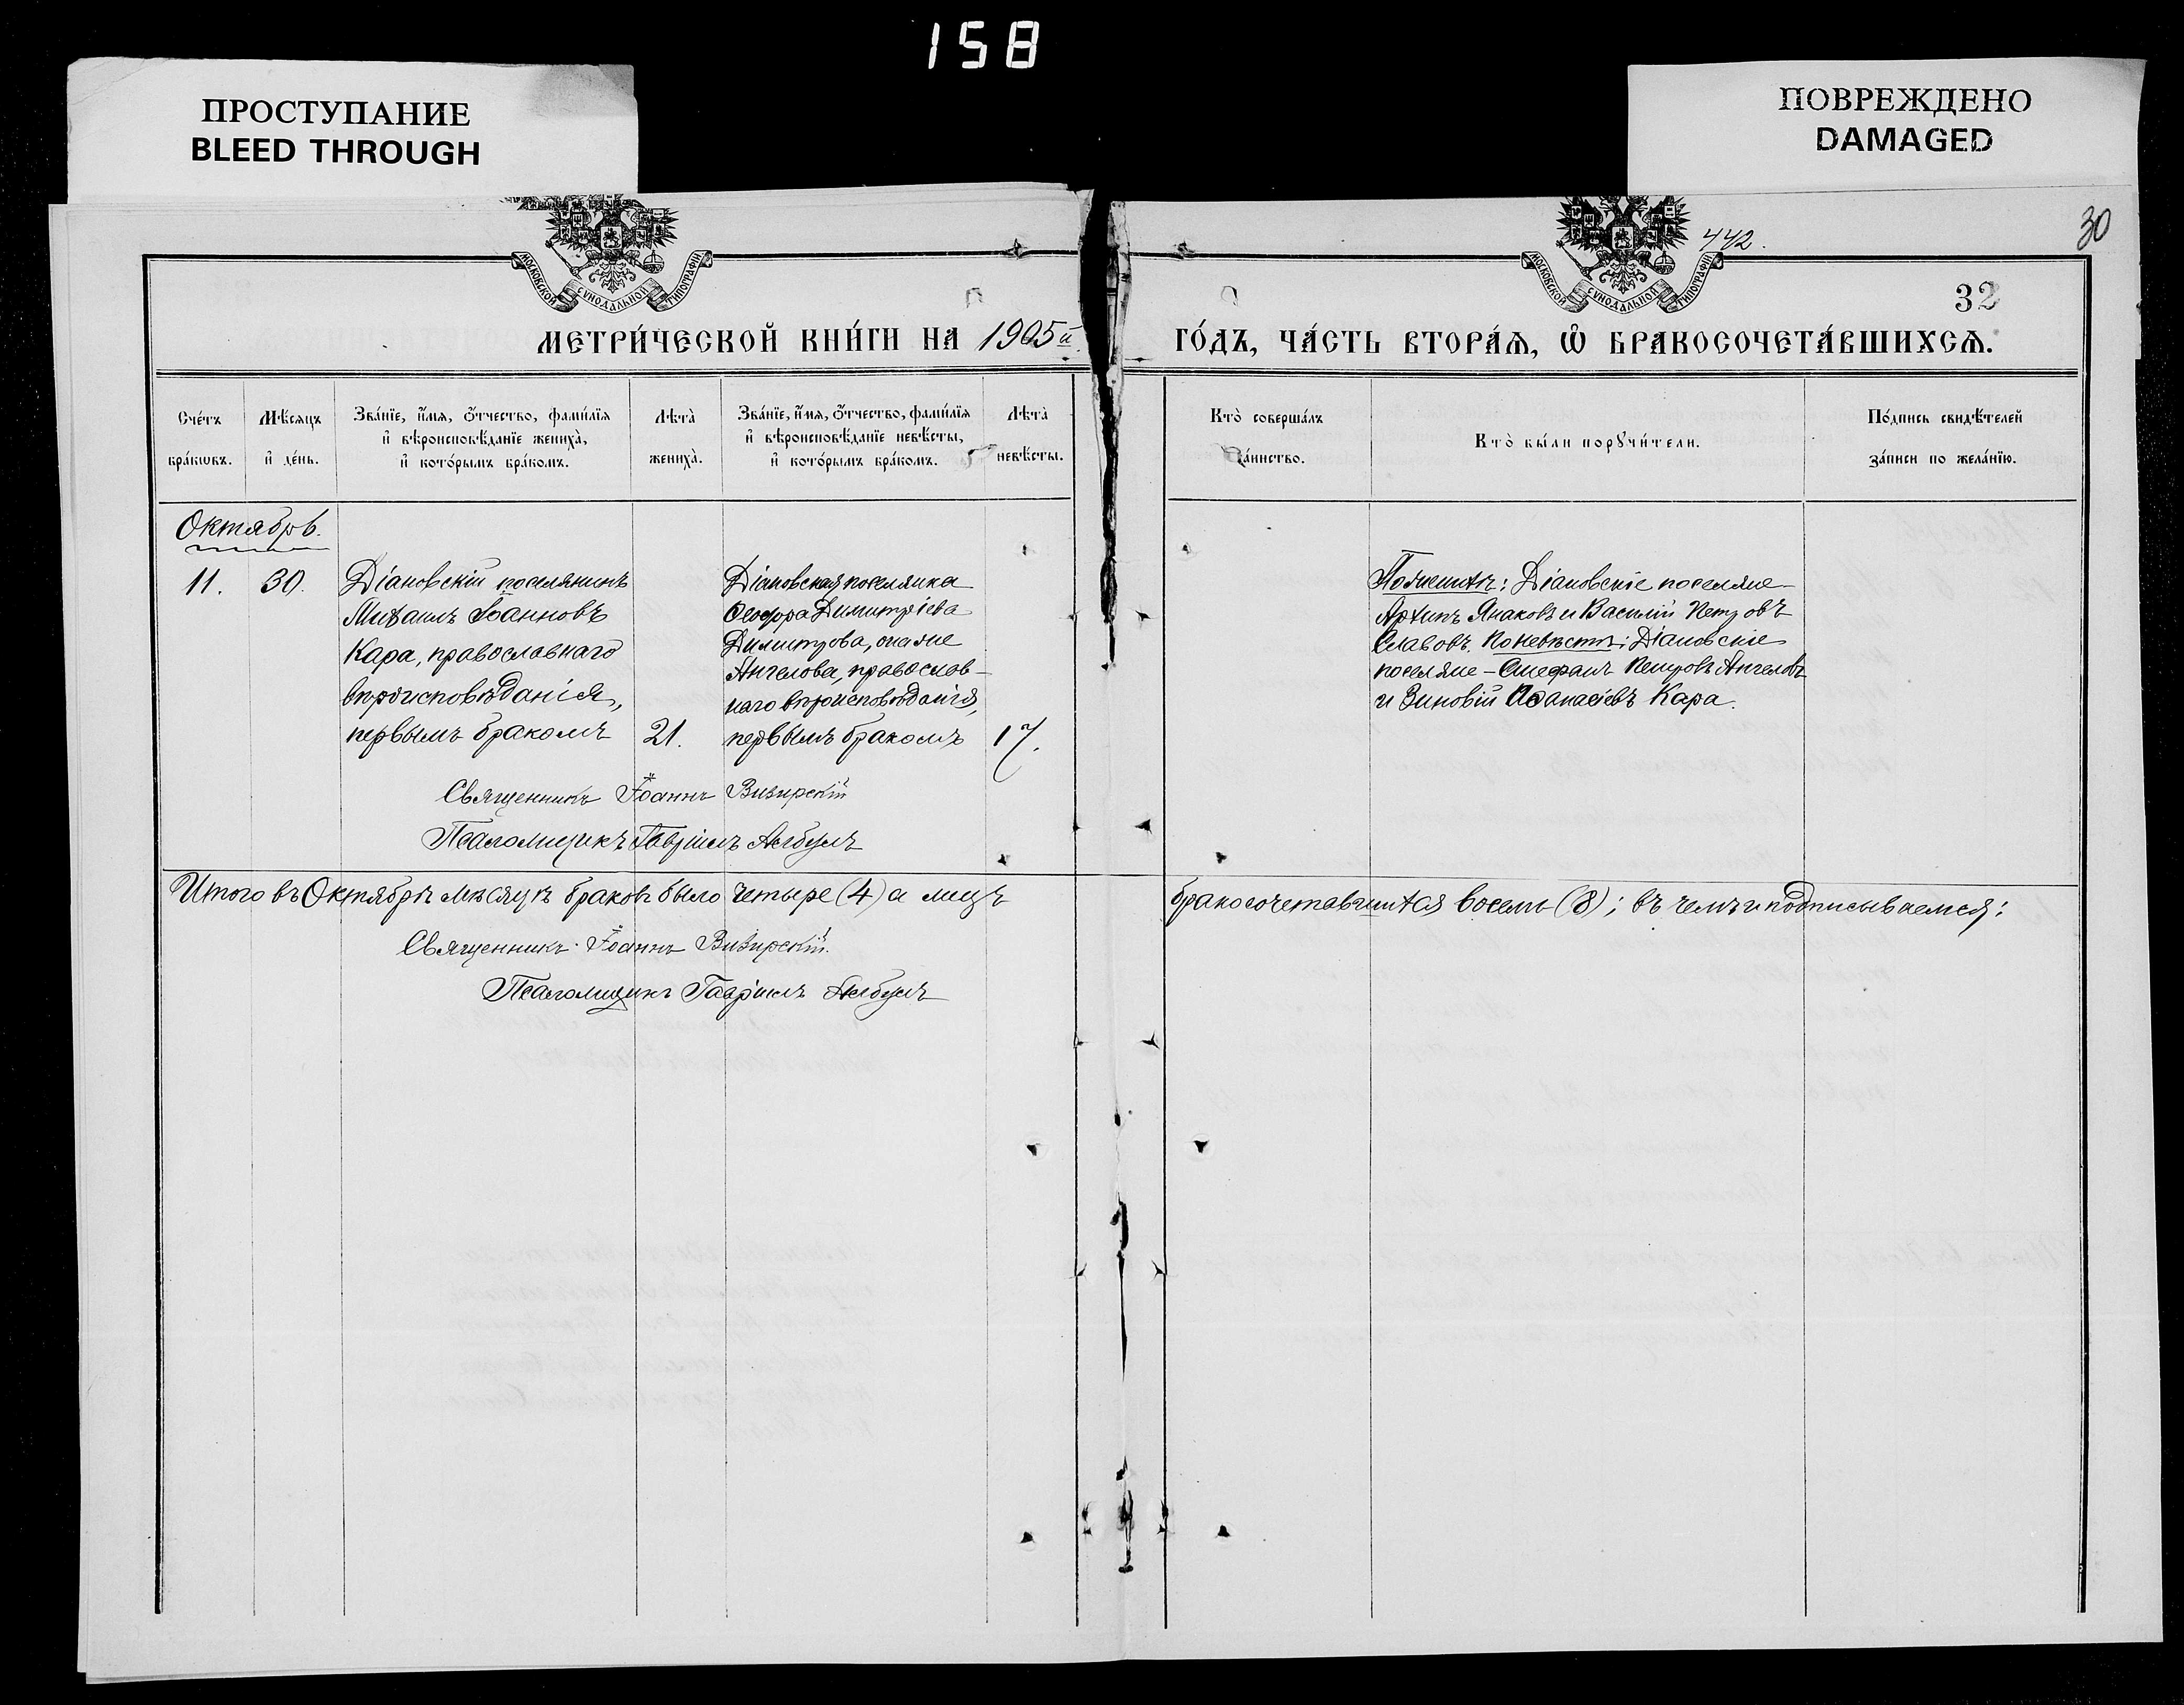 158
ПРОСТУПАНИЕ
BLEED THROUGH
ПОВРЕЖДЕНО
DAMAGED
МОСКОВСКОЙ СѴНОДАЛЬНОЙ ТИПОГРАФІИ
МОСКОВСКОЙ СѴНОДАЛЬНОЙ ТИПОГРАФІИ
442.
30
32
МЕТРИ́ЧЕСКОЙ КНИ́ГИ НА 1905й
ГО́ДЪ, ЧА́СТЬ ВТОРА́Ѧ, Ѽ БРАКОСОЧЕТА́ВШИХСѦ.
Сче́тъ бра́кѡвъ.
Мѣ́сяцъ и҆ де́нь.
Зва́нїе, и҆́мя, ѻ҆́тчество, фами́лїя и҆ вѣроисповѣ́данїе жениха̀, и҆ кото́рымъ бра́комъ.
Лѣта̀ жениха̀.
Зва́нїе, и҆́мя, ѻ҆́тчество, фами́лїя и҆ вѣроисповѣ́данїе невѣ́сты, и҆ кото́рымъ бра́комъ.
Лѣта̀ невѣ́сты.
Кто̀ соверша́лъ та́инство.
Кто̀ бы́ли порꙋчи́тели.
По́дпись свидѣ́телей за́писи по жела́нїю.
Октябрь.
11. 30.
Діановскій поселянинъ
Михаилъ Іоанновъ
Кара, православнаго
вѣроисповѣданія,
первымъ бракомъ
21.
Діановская поселянка
Димитріева
Димитрова, она же
Ангелова, православ-
наго вѣроисповѣданія,
первымъ бракомъ
17.
По женихѣ: Діановскіе поселяне-
Архипъ Янаковъ и Василій Петровъ
Славовъ. По невѣстѣ: Діановскіе
поселяне - Стефанъ Петровъ Ангеловъ
и Зиновій Аѳанасіевъ Кара.
Священникъ Іоаннъ Визирскій
Псаломщикъ Гавріилъ Албулъ
Итого въ Октябрѣ мѣсяцѣ браковъ было четыре (4) а лицъ бракосочетавшихся восемь (8); въ чемъ и подписываемся:
Священникъ Іоаннъ Визирскій.
Псаломщикъ Гавріилъ Албулъ